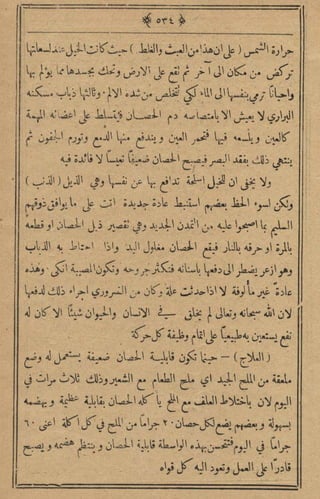 ﴿ ٥٣٤ ﴾
حرارة الشمس ( على ان هذا من العبث والغلط ) حيث كانت الخيل عند لسعاتها
تركض من مكان الى آخر ثم تقع على الارض وتحك بجسدها مما يؤلم بها
واحيانا ترمي بنفسها الى الماء لكي تتخلص من شدة الالم . وثالثها ذباب مسكنه
البراري لا يعيش الا بامتصاصه دم الحصان فيتسلط على اعضائه المهمة
كالعين ويلسعه فيها فتحمر العين ويندفع منها الدمع وتورم الجفون ثم
ينتهي ذلك بفقد البصر فيصبح الحصان ضعيفا تعيسا لا فائدة فيه
ولا يخفى ان للخيل اسلحة تدافع بها عن نفسها وهي الذيل ( الذنب )
ولكن لسوء الحظ بعضهم استنبط عادة جديدة اتت على ما يوافق ذوقهم
السليم بما اصبحوا عليه من التمدن الجديد وهي تقصير ذيل الحصان او قطعه
بالمرة او حرقه بالنار فيقع الحصان مغلول اليد واذا احتاط به الذباب
وهو ازعر يضطر الى دفعها باسنانه فتكثر جروحه وتكون المصيبة انكى . وهذه
عادة غير مألوفة لا اذا حدثت علة وكان من الضروري اجراء ذلك لدفعها
لان الله سبحانه وتعالى لم يخلق في الانسان والحيوان شيئا الا كان له
نفع يستعين به طبيعيا على اتمام وظيفة كل حركة
( العلاج ) — حينما تكون قابلية الحصان ضعيفة يستعمل له وضع
ملعقة من الملح الجيد اي ملح الطعام مع الشعير وذلك ثلاث مرات في
اليوم لان باختلاط العلف مع الملح ياكله الحصان بقابلية عظيمة ويهضمه
بسهولة وبعضهم يضع لكل حصان ٢٠ جراما من الملح في كل اكلة اعنى ٦٠
جراما في اليوم فتتحسن بهذه الواسطة قابلية الحصان وينتظم هضمه ويصبح
قادرا على العمل وتعود اليه كل قواه